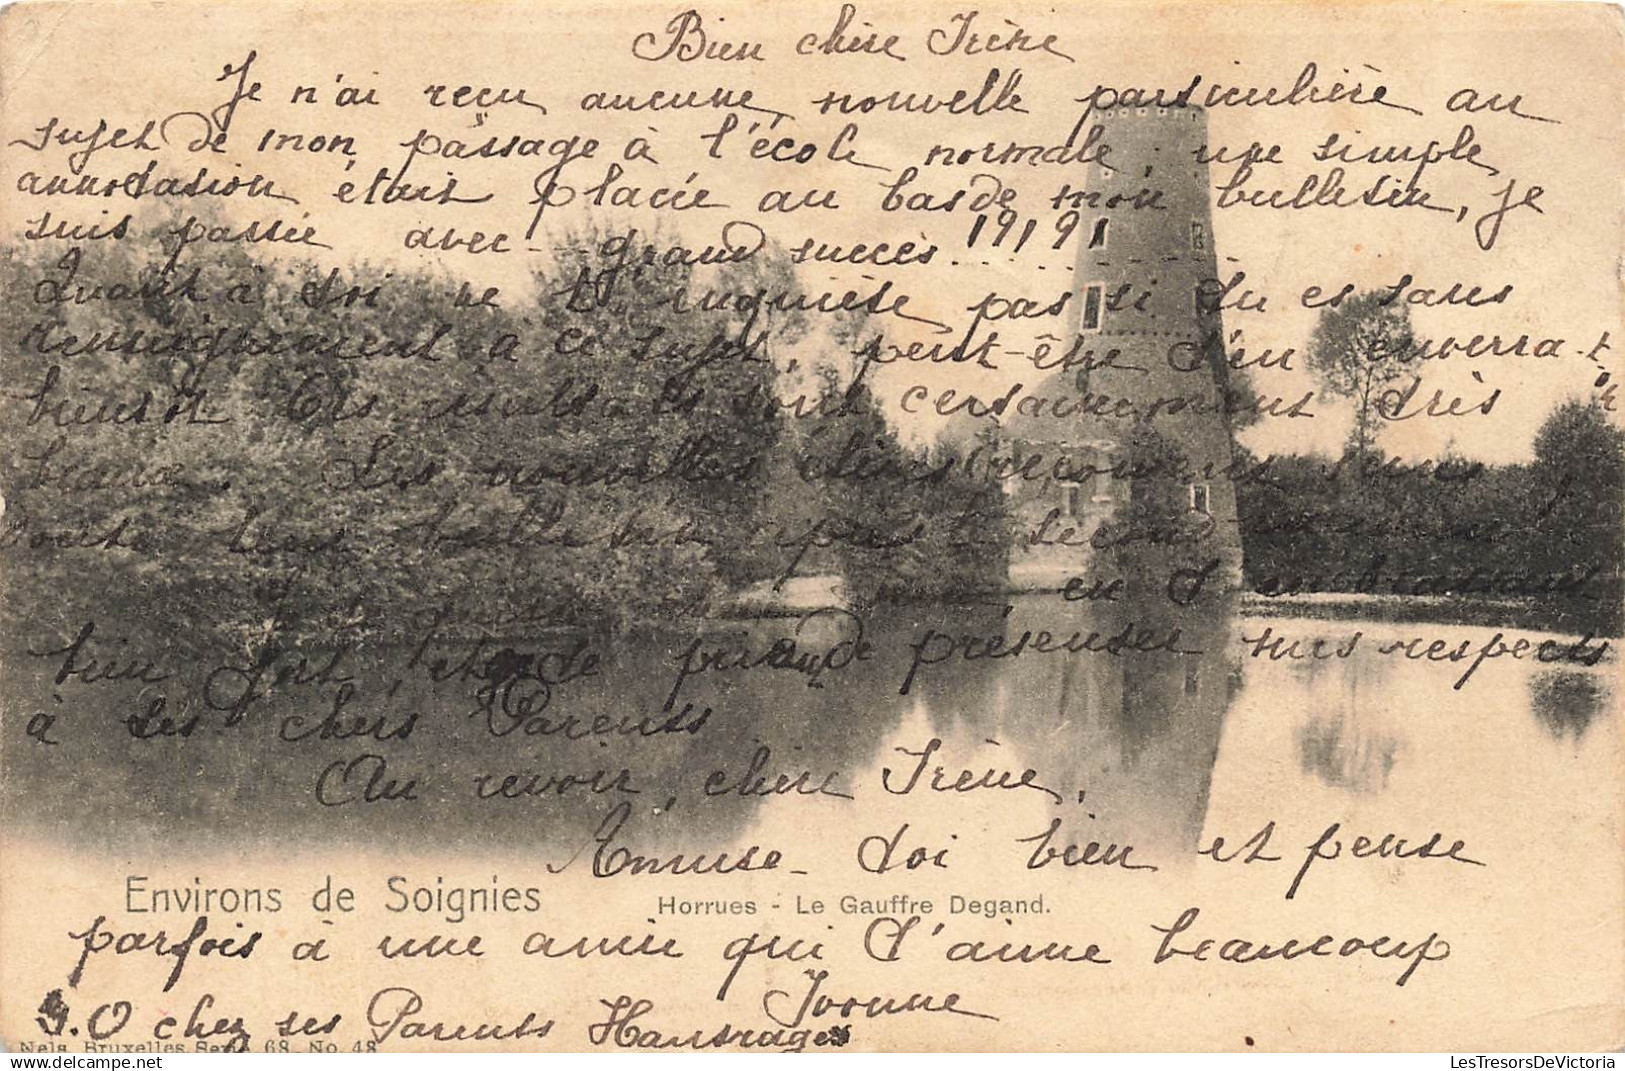 Bien chère Irène
Je n'ai reçu aucune nouvelle particulière au
sujet de mon passage à l'école normale, une simple
annotation était placée au bas de mon bulletin, je
suis passée avec grand succès. !?!?!
Quant à toi ne t'inquiète pas si tu es sans
renseignement à ce sujet, peut-être t'en enverra-t-on
bientôt Tes résultats sont certainement très
beaux. Les nouvelles élèves recevront sans
doute leur bulletin après le second
Je te quitte en t'embrassant
bien fort, et te de présenter mes respects
à tes chers Parents
Au revoir, chère Irène,
Amuse-toi bien et pense
Environs de Soignies
Horrues - Le Gauffre Degand.
parfois à une amie qui t'aime beaucoup
Yvonne
chez ses Parents Hautrages
Nels, Bruxelles Serie 68 No. 48
LesTresorsDeVictoria